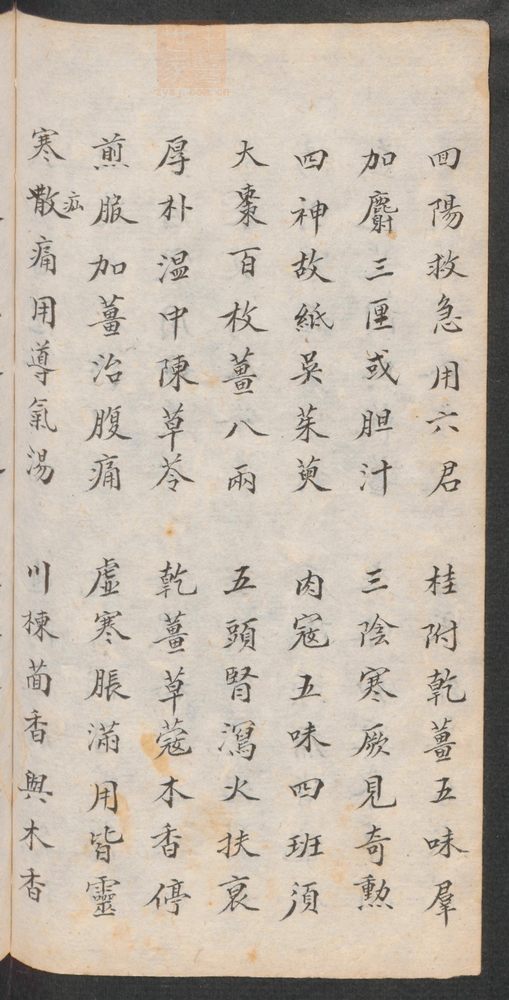 回陽救急用六君　桂附乾薑五味羣
加麝三厘或胆汁　三陰寒厥見奇勲
四神故紙吳茱萸　肉寇五味四班須
大棗百枚薑八兩　五頭腎瀉火扶衰
厚朴温中陳草苓　乾薑草蔻木香停
煎服加薑治腹痛　虛寒脹滿用皆靈
寒疝散痛用導氣湯　川楝茴香與木香